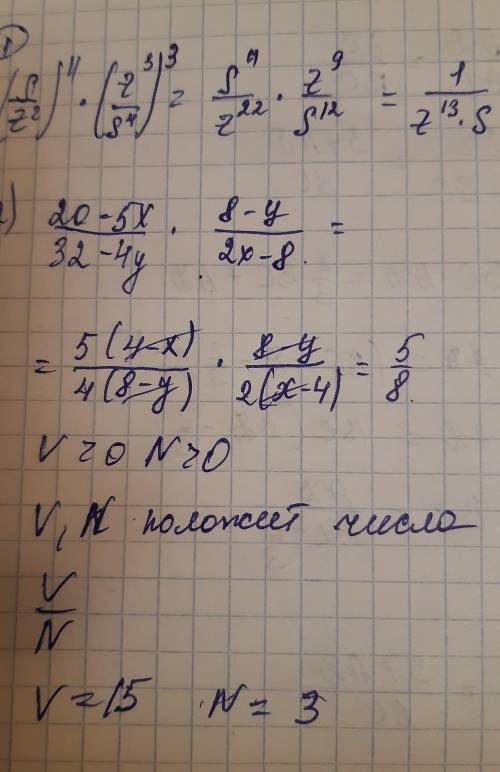 1
(s/z²)⁴ · (z³/s⁴)³ = s⁴/z²² · z⁹/s¹² = 1/(z¹³ · s)
) (20 - 5x)/(32 - 4y) · (8 - y)/(2x - 8) =
= 5(4 - x)/4(8 - y) · (8 - y)/2(x - 4) = 5/8.
V > 0 N > 0
V, N положит числа
V/N
V = 15 N = 3